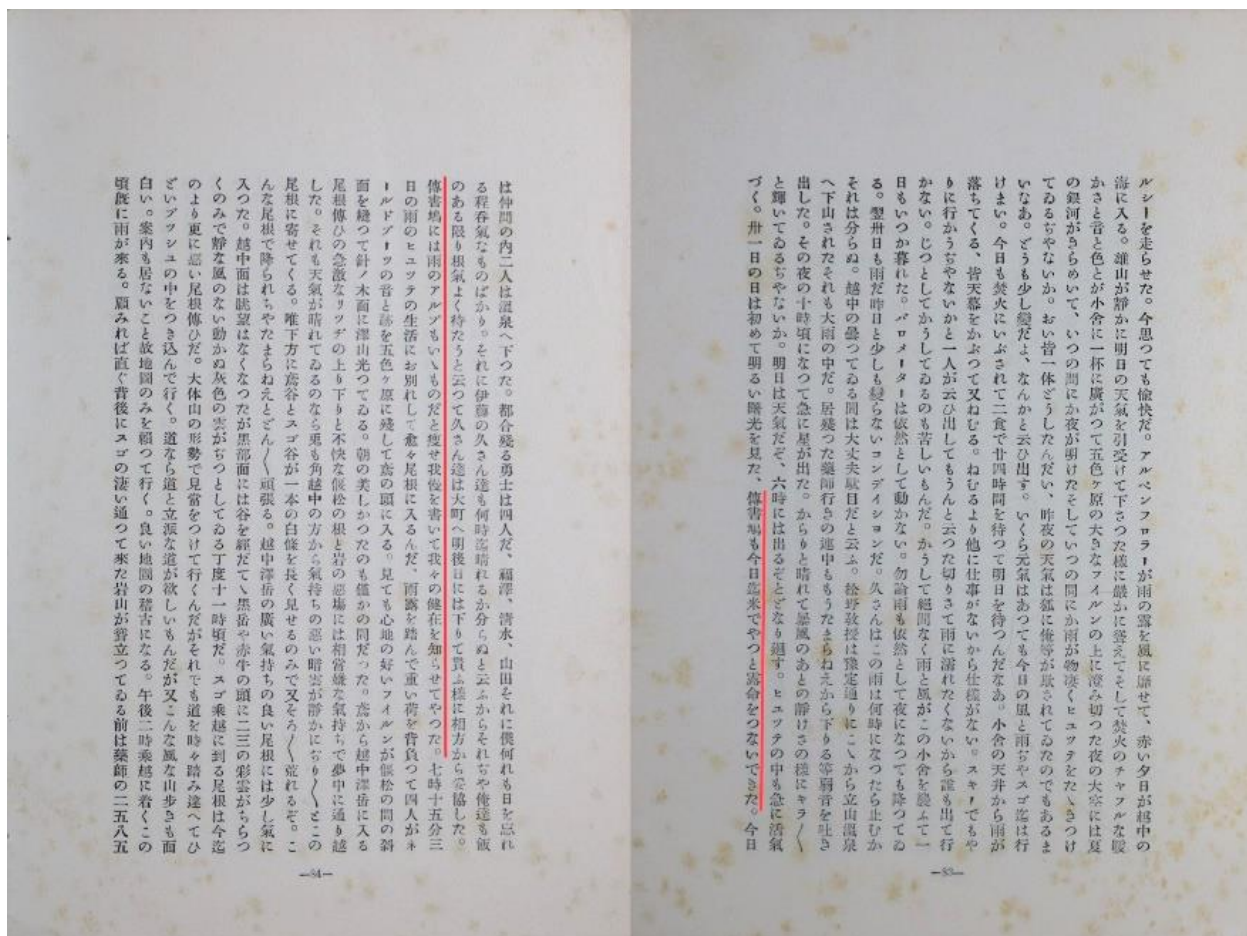 ルシーを走らせた。今思つても愉快だ。アルペンフロラーが雨の露を風に靡せて、赤い夕日が越中の
海に入る。雄山が靜かに明日の天氣を引受けて下さつた様に嚴かに聳えてそして焚火のチャフルな暖
かさと音と色とが小舍に一杯に廣がつて五色ヶ原の大きなフイルンの上に澄み切つた夜の大空には夏
の銀河がきらめいて、いつの間にか夜が明けたそしていつの間にか雨が物凄くヒュッテをたゝきつけ
てゐるぢやないか。おい皆一体どうしたんだい、昨夜の天氣は狐に俺等が欺されてゐたのでもあるま
いなあ。どうも少し變だよ、なんかと云ひ出す。いくら元氣はあつても今日の風と雨ぢやスゴ迄は行
けまい。今日も焚火にいぶされて二食で廿四時間を待つて明日を待つんだなあ。小舍の天井から雨が
落ちてくる、皆天幕をかぶつて又ねむる。ねむるより他に仕事がないから仕樣がない。スキーでもや
りに行かうぢやないかと一人が云ひ出してもうんと云つた切りさて雨に濡れたくないから誰も出て行
かない。じつとしてかうしてゐるのも苦しいもんだ。かうして絕間なく雨と風がこの小舍を襲ふて一
日もいつか暮れた。バロメーターは依然として動かない。勿論雨も依然として夜になつても降つてゐ
る。翌卅日も雨だ昨日と少しも變らないコンデイションだ。久さんはこの雨は何時になつたら止むか
それは分らぬ。越中の曇つてゐる間は大丈夫駄目だと云ふ。松野敎授は豫定通りにこゝから立山溫泉
へ下山されたそれも大雨の中だ。居殘つた藥師行きの連中ももうたまらねえから下りる等弱音を吐き
出した。その夜の十時頃になつて急に星が出た。からりと晴れて暴風のあとの靜けさの樣にキラ〱
と輝いてゐるぢやないか。明日は天氣だぞ、六時には出るぞとどなり廻す。ヒュッテの中も急に活氣
づく。卅一日の日は初めて明るい曙光を見た、傳書鳩も今日迄米でやつと露命をつないできた。今日
—83—
は仲間の内二人は溫泉へ下つた。都合殘る勇士は四人だ、福澤、淸水、山田それに僕何れも日を忘れ
る程呑氣なものばかり。それに伊藤の久さん達も何時迄晴れるか分らぬと云ふからそれぢや俺達も飯
のある限り根氣よく待たうと云つて久さん達は大町へ明後日には下りて貰ふ樣に相方から妥協した。
傳書鳩には雨のアルプもいゝものだと瘦せ我慢を書いて我々の健在を知らせてやつた。七時十五分三
日の雨のヒュッテの生活にお別れして愈々尾根に入るんだ、雨露を踏んで重い荷を背負つて四人がネ
ールドブーツの音と跡を五色ヶ原に殘して鳶の頭に入る。見ても心地の好いフイルンが偃松の間の斜
面を縫つて針ノ木面に澤山光つてゐる。朝の美しかつたのも僅かの間だつた。鳶から越中澤岳に入る
尾根傳ひの急激なリッヂの上り下りと不快な偃松の根と岩の惡場には相當嫌な氣持ちで夢中に通り越
した。それも天氣が晴れてゐるのなら兎も角越中の方から氣持ちの惡い暗雲が靜かにぢり〱とこの
尾根に寄せてくる。唯下方に鳶谷とスゴ谷が一本の白條を長く見せるのみで又そろ〱荒れるぞ。こ
んな尾根で降られちやたまらねえとどん〱頑張る。越中澤岳の廣い氣持ちの良い尾根には少し氣に
入つた。越中面は眺望はなくなつたが黑部面には谷を經だてゝ黑岳や赤牛の頭に二三の彩雲がちらつ
くのみで靜な風のない動かぬ灰色の雲がぢつとしてゐる丁度十一時頃だ。スゴ乘越に到る尾根は今迄
のより更に惡い尾根傳ひだ。大体山の形勢で見當をつけて行くんだがそれでも道を時々踏み違へてひ
どいブッシュの中をつき込んで行く。道なら道と立派な道が欲しいもんだが又こんな風な山步きも面
白い。案內も居ないこと故地圖のみを賴つて行く。良い地圖の稽古になる。午後二時乘越に着くこの
頃旣に雨が來る。顧みれば直ぐ背後にスゴの凄い通つて來た岩山が聳立つてゐる前は藥師の二五八五
—84—